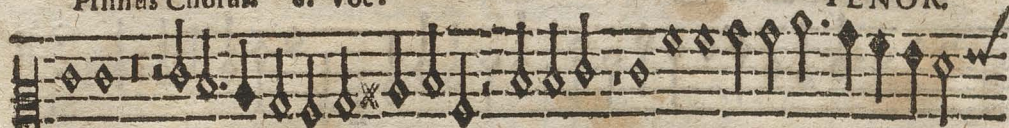 Primus Chorus. 8. Voc.
TENOR.